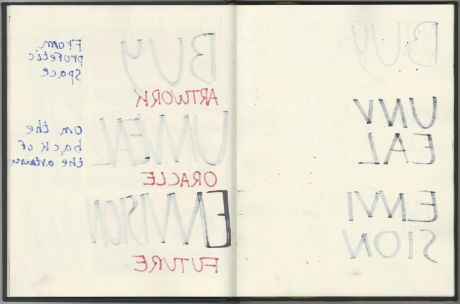 From
profetic
space
BUY
ARTWORK
on the
back of
the
UNVEAL
ORACLE
ENVISION
FUTURE
BUY
UNV
EAL
ENVI
SION